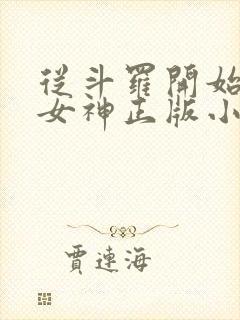 從斗羅開始
女神正版小
賈連海